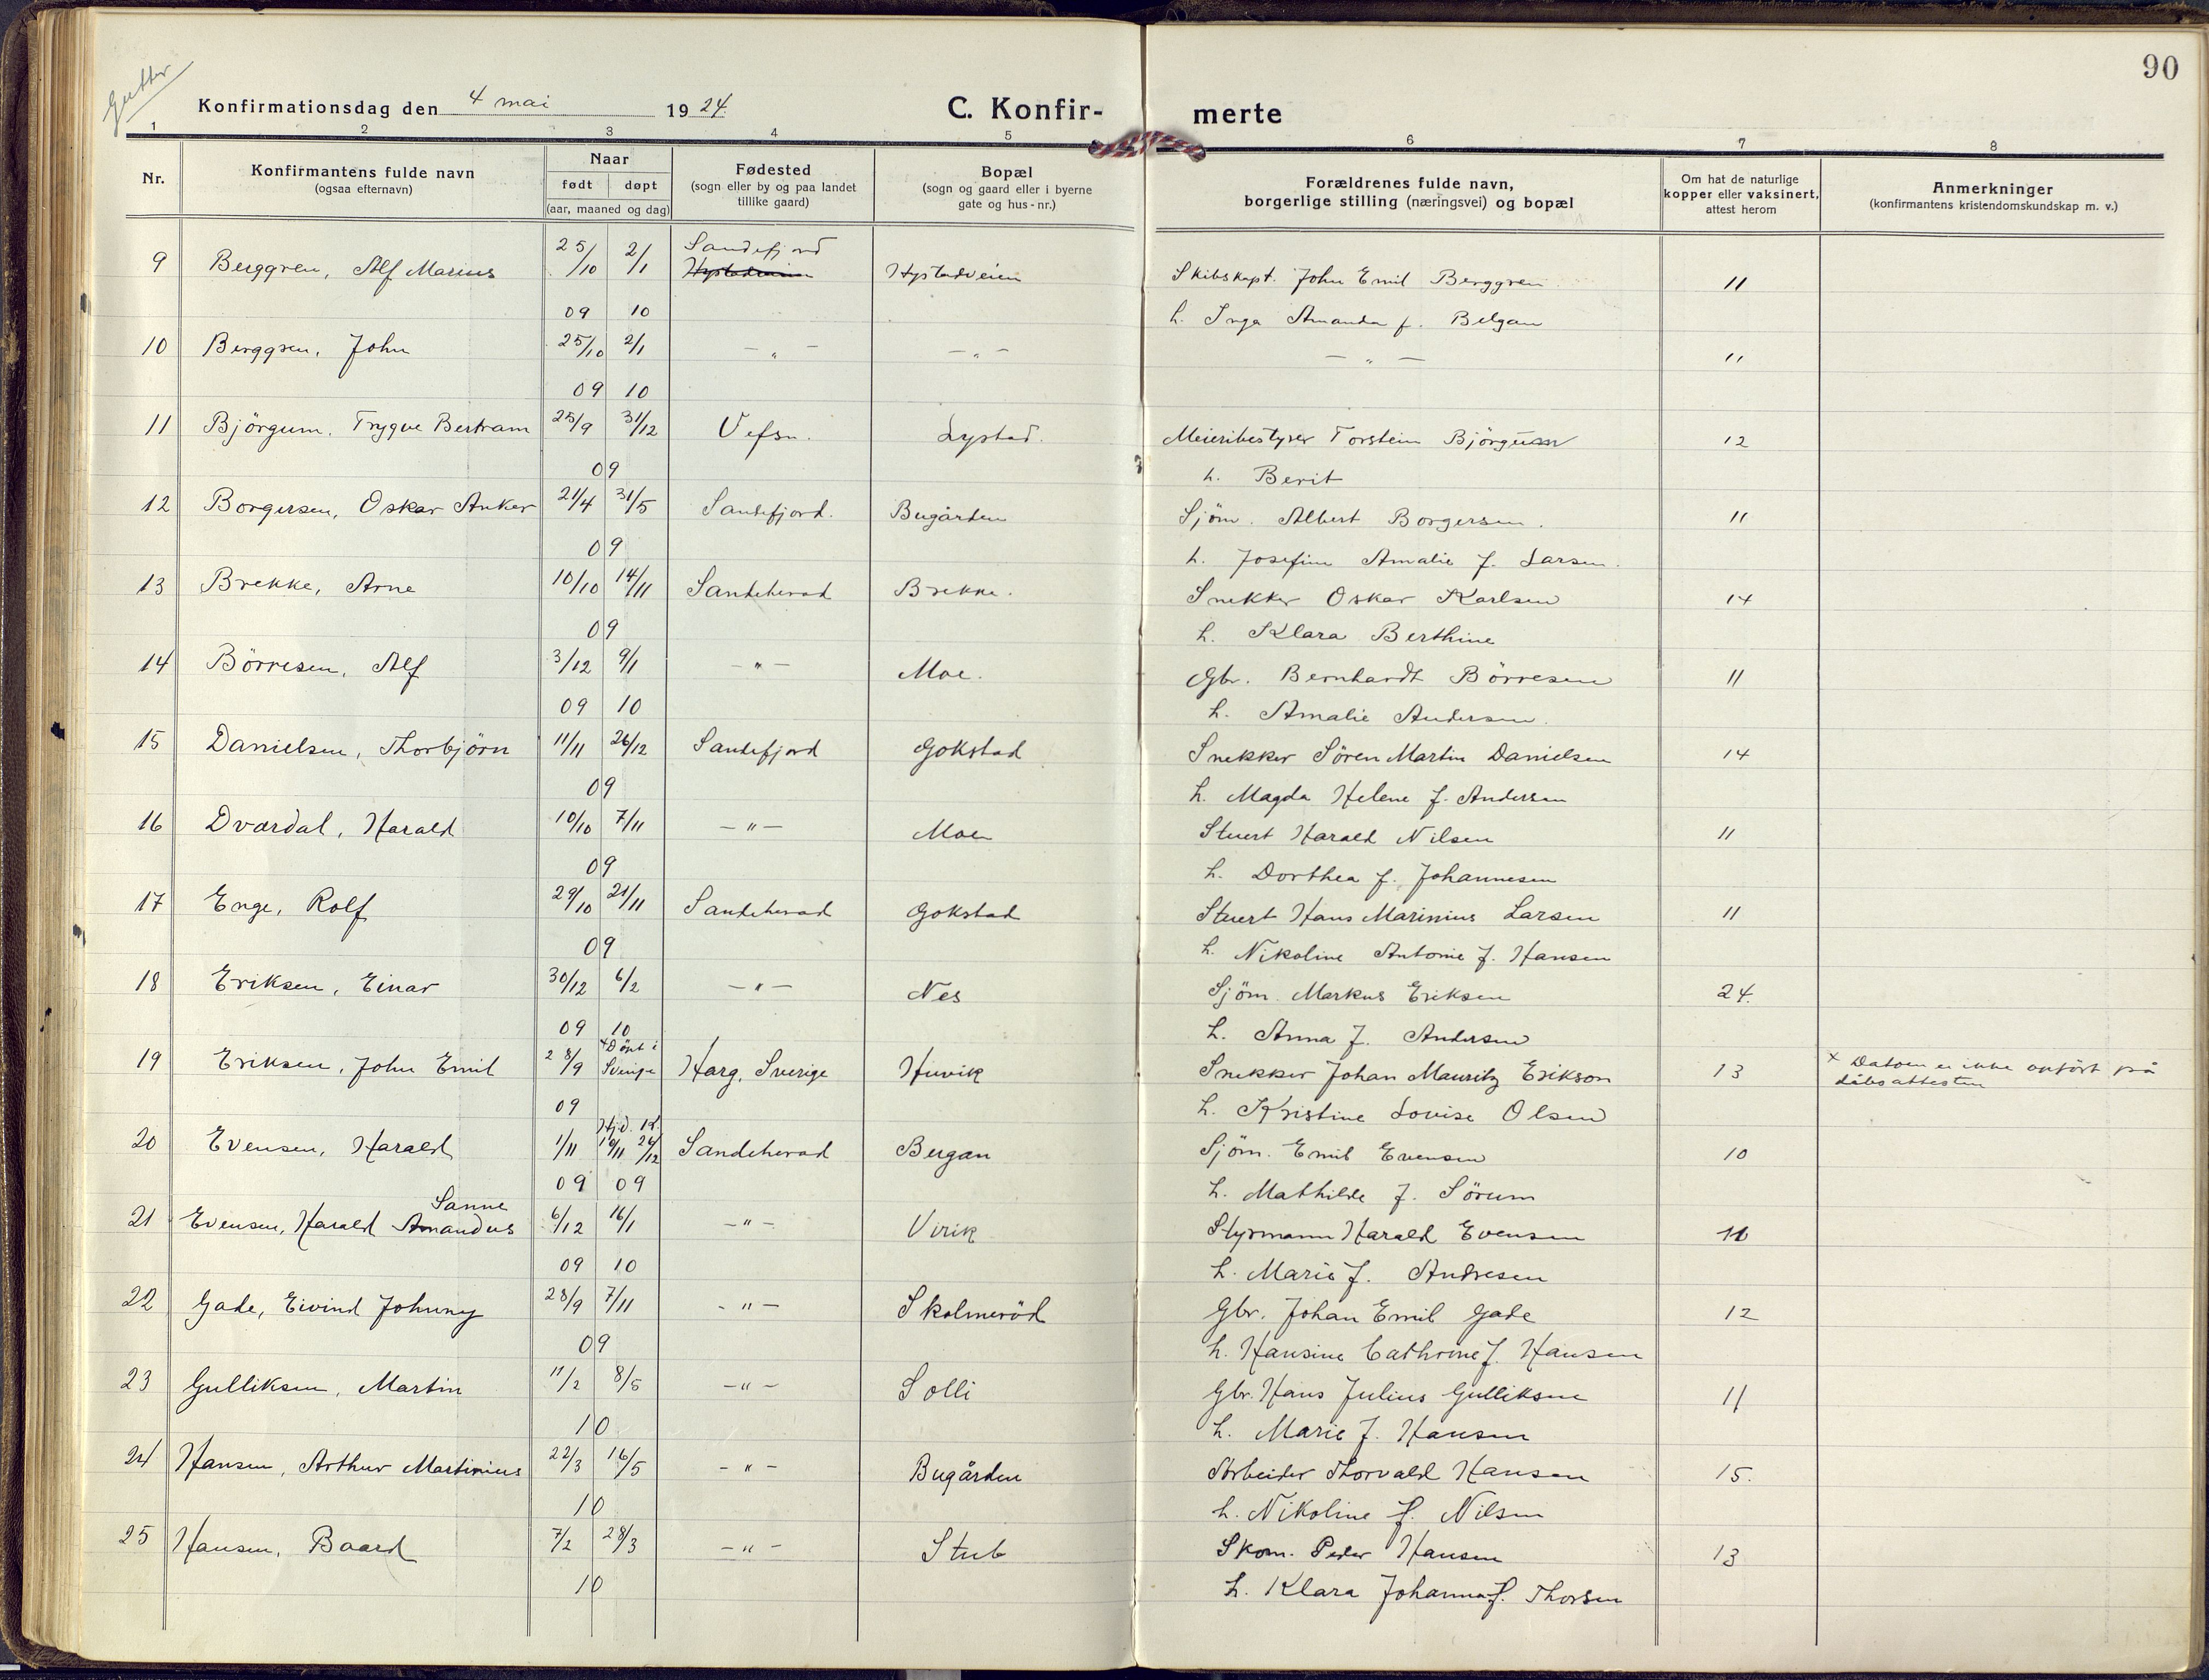 90
Gutter
Konfirmationsdag den 4 mai 1924
C. Konfir-
merte
1 2 3 4 5 6 7 8
Nr.
Konfirmantens fulde navn
(ogsaa efternavn)
Naar
født døpt
(aar, maaned og dag)
Fødested
(sogn eller by og paa landet
tillike gaard)
Bopæl
(sogn og gaard eller i byerne
gate og hus-nr.)
Forældrenes fulde navn,
borgerlige stilling (næringsvei) og bopæl
Om hat de naturlige
kopper eller vaksinert,
attest herom
Anmerkninger
(konfirmantens kristendomskundskap m. v.)
9 Berggren, Alf Marius 25/10 2/1 Sandefjord Hystadveien Skibskapt. John Emil Berggren 11
09 10 h. Inga Amanda f. Belgau
10 Berggren, John 25/10 2/1 — „ — — „ — — „ — 11
09 10
11 Björgum, Trygve Bertram 25/9 31/12 Vefsn. Lystad. Meieribestyrer Torstein Björgum 12
09 h. Berit
12 Borgersen, Oskar Anker 21/4 31/5 Sandefjord. Bugården Sjöm. Albert Borgersen. 11
09 h. Josefine Amalie f. Larsen.
13 Brekke, Arne 10/10 14/11 Sandeherad Brekke. Snekker Oskar Karlsen 14
09 h. Klara Berthine
14 Börresen, Alf 3/12 9/1 — „ — Moe. Gbr. Bernhardt Börresen 11
09 10 h. Amalie Andersen.
15 Danielsen, Thorbjörn 11/11 26/12 Sandefjord Gokstad Snekker Sören Martin Danielsen 14
09 h. Magda Helene f. Andersen
16 Dvardal, Harald 10/10 7/11 — „ — Moe Stuert Harald Nilsen 11
09 h. Dorthea f. Johannesen
17 Enge, Rolf 29/10 21/11 Sandeherad Gokstad Stuert Hans Marinius Larsen 11
09 h. Nikoline Antonie f. Hansen
18 Eriksen, Einar 30/12 6/2 — „ — Nes Sjöm. Markus Eriksen 24.
09 10 h. Anna f. Andersen
19 Eriksen, John Emil 28/9 x Döpt i Sverige Harg, Sverige Huvik Snekker Johan Mauritz Erikson 13 x Datoen er ikke anfört på
dåbsattesten
09 h. Kristine Lovise Olsen
20 Evensen, Harald 1/11 Hjd. 10/11 K. 26/12 Sandeherad Bugan Sjöm. Emil Evensen 10
09 09 h. Mathilde f. Sörum
21 Evensen, Harald Sanne Amandus 6/12 16/1 — „ — Virik Styrmann Harald Evensen 11
09 10 h. Marie f. Andresen
22 Gade, Eivind Johnny 28/9 7/11 — „ — Skolmeröd Gbr. Johan Emil Gade 12
09 h. Hansine Cathrine f. Hansen
23 Gulliksen, Martin 11/2 8/5 — „ — Solli Gbr. Hans Julius Gulliksen 11
10 h. Marie f. Hansen
24 Hansen, Arthur Martinius 22/3 16/5 — „ — Bugården Arbeider Thorvald Hansen 15.
10 h. Nikoline f. Nilsen
25 Hansen, Baard 7/2 28/3 — „ — Stub Skom. Peder Hansen 13
10 h. Klara Johanna f. Thorsen